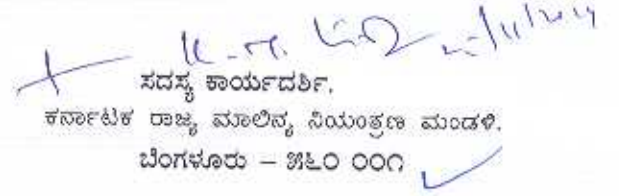 ಸದಸ್ಯ ಕಾರ್ಯದರ್ಶಿ,
ಕರ್ನಾಟಕ ರಾಜ್ಯ ಮಾಲಿನ್ಯ ನಿಯಂತ್ರಣ ಮಂಡಳಿ,
ಬೆಂಗಳೂರು – ೫೬೦ ೦೦೧